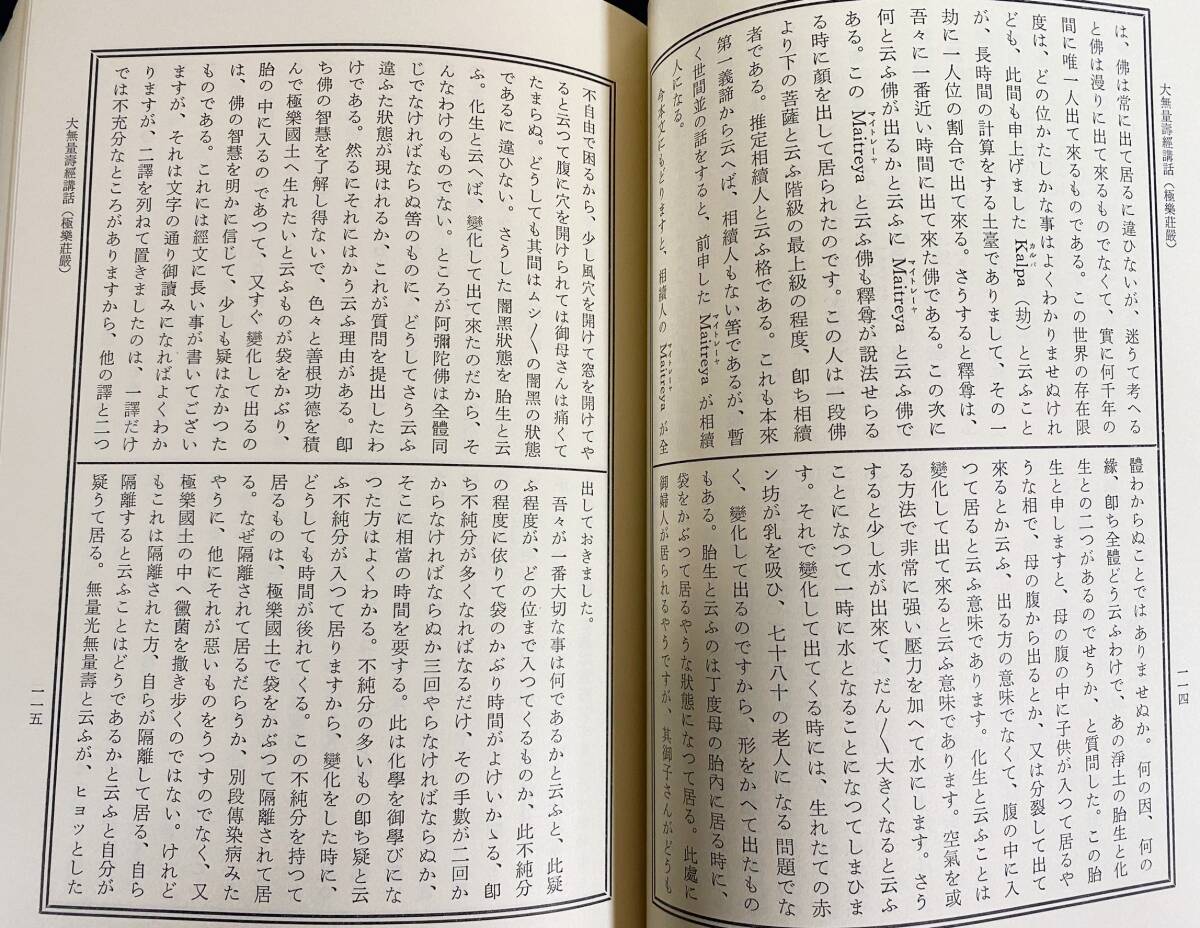 大無量壽經講話（極樂莊嚴）
一一四
は、佛は常に出て居るに違ひないが、迷うて考へる
と佛は漫りに出て來るものでなくて、實に何千年の
間に唯一人出て來るものである。この世界の存在限
度は、どの位かたしかな事はよくわかりませぬけれ
ども、此間も申上げました Kalpa（劫）と云ふこと
カルパ
が、長時間の計算をする土臺でありまして、その一
劫に一人位の割合で出て來る。さうすると釋尊は、
吾々に一番近い時間に出て來た佛である。この次に
何と云ふ佛が出るかと云ふに Maitreya と云ふ佛で
マイトレーヤ
ある。この Maitreya と云ふ佛も釋尊が說法せらる
マイトレーヤ
る時に顏を出して居られたのです。この人は一段佛
より下の菩薩と云ふ階級の最上級の程度、卽ち相續
者である。推定相續人と云ふ格である。これも本來
第一義諦から云へば、相續人もない筈であるが、暫
く世間並の話をすると、前申した Maitreya が相續
マイトレーヤ
人になる。
今本文にもどりますと、相續人の Maitreya が全
マイトレーヤ
體わからぬことではありませぬか。何の因、何の
緣、卽ち全體どう云ふわけで、あの淨土の胎生と化
生との二つがあるのでせうか、と質問した。この胎
生と申しますと、母の腹の中に子供が入つて居るや
うな相で、母の腹から出るとか、又は分裂して出て
來るとか云ふ、出る方の意味でなくて、腹の中に入
つて居ると云ふ意味であります。化生と云ふことは
變化して出て來ると云ふ意味であります。空氣を或
る方法で非常に强い壓力を加へて水にします。さう
すると少し水が出來て、だん〳〵大きくなると云ふ
ことになつて一時に水となることになつてしまひま
す。それで變化して出てくる時には、生れたての赤
ン坊が乳を吸ひ、七十八十の老人になる問題でな
く、變化して出るのですから、形をかへて出たもの
もある。胎生と云ふのは丁度母の胎內に居る時に、
袋をかぶつて居るやうな狀態になつて居る。此處に
御婦人が居られるやうですが、其御子さんがどうも
大無量壽經講話（極樂莊嚴）
一一五
不自由で困るから、少し風穴を開けて窓を開けてや
ると云つて腹に穴を開けられては御母さんは痛くて
たまらぬ。どうしても其間はムシ〳〵の闇黑の狀態
であるに違ひない。さうした闇黑狀態を胎生と云
ふ。化生と云へば、變化して出て來たのだから、そ
んなわけのものでない。ところが阿彌陀佛は全體同
じでなければならぬ筈のものに、どうしてさう云ふ
違ふた狀態が現はれるか、これが質問を提出したわ
けである。然るにそれにはかう云ふ理由がある。卽
ち佛の智慧を了解し得ないで、色々と善根功德を積
んで極樂國土へ生れたいと云ふものが袋をかぶり、
胎の中に入るのであつて、又すぐ變化して出るの
は、佛の智慧を明かに信じて、少しも疑はなかつた
ものである。これには經文に長い事が書いてござい
ますが、それは文字の通り御讀みになればよくわか
りますが、二譯を列ねて置きましたのは、一譯だけ
では不充分なところがありますから、他の譯と二つ
出しておきました。
吾々が一番大切な事は何であるかと云ふと、此疑
ふ程度が、どの位まで入つてくるものか、此不純分
の程度に依りて袋のかぶり時間がよけいかゝる、卽
ち不純分が多くなればなるだけ、その手數が二回か
からなければならぬか三回やらなければならぬか、
そこに相當の時間を要する。此は化學を御學びにな
つた方はよくわかる。不純分の多いもの卽ち疑と云
ふ不純分が入つて居りますから、變化をした時に、
どうしても時間が後れてくる。この不純分を持つて
居るものは、極樂國土で袋をかぶつて隔離されて居
る。なぜ隔離されて居るだらうか、別段傳染病みた
やうに、他にそれが惡いものをうつすのでなく、又
極樂國土の中へ黴菌を撒き步くのではない。けれど
もこれは隔離された方、自らが隔離して居る、自ら
隔離すると云ふことはどうであるかと云ふと自分が
疑うて居る。無量光無量壽と云ふが、ヒョッとした